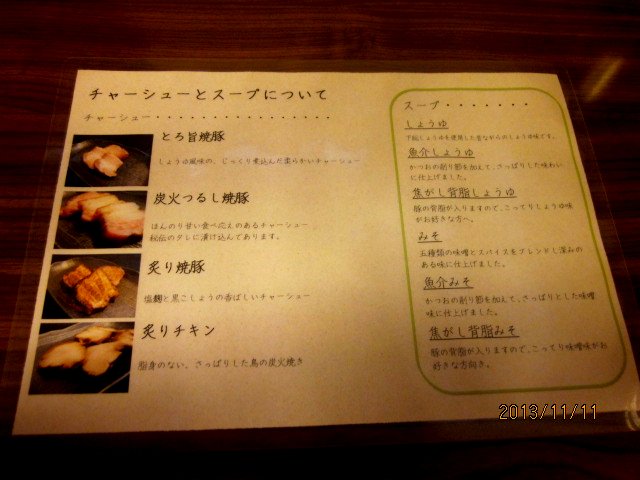 チャーシューとスープについて
チャーシュー・・・・・・・・・・・・・・・・
とろ旨焼豚
しょうゆ風味の、じっくり煮込んだ柔らかいチャーシュー
炭火つるし焼豚
ほんのり甘い食べ応えのあるチャーシュー
秘伝のタレに漬け込んであります。
炙り焼豚
塩麹と黒こしょうの香ばしいチャーシュー
炙りチキン
脂身のない、さっぱりした鳥の炭火焼き
スープ・・・・・・・
しょうゆ
下総しょうゆを使用した昔ながらのしょうゆ味です。
魚介しょうゆ
かつおの削り節を加えて、さっぱりした味わい
に仕上げました。
焦がし背脂しょうゆ
豚の背脂が入りますので、こってりしょうゆ味
がお好きな方へ。
みそ
五種類の味噌とスパイスをブレンドし深みの
ある味に仕上げました。
魚介みそ
かつおの削り節を加えて、さっぱりとした味噌
味に仕上げました。
焦がし背脂みそ
豚の背脂が入りますので、こってり味噌味がお
好きな方向き。
2013/11/11